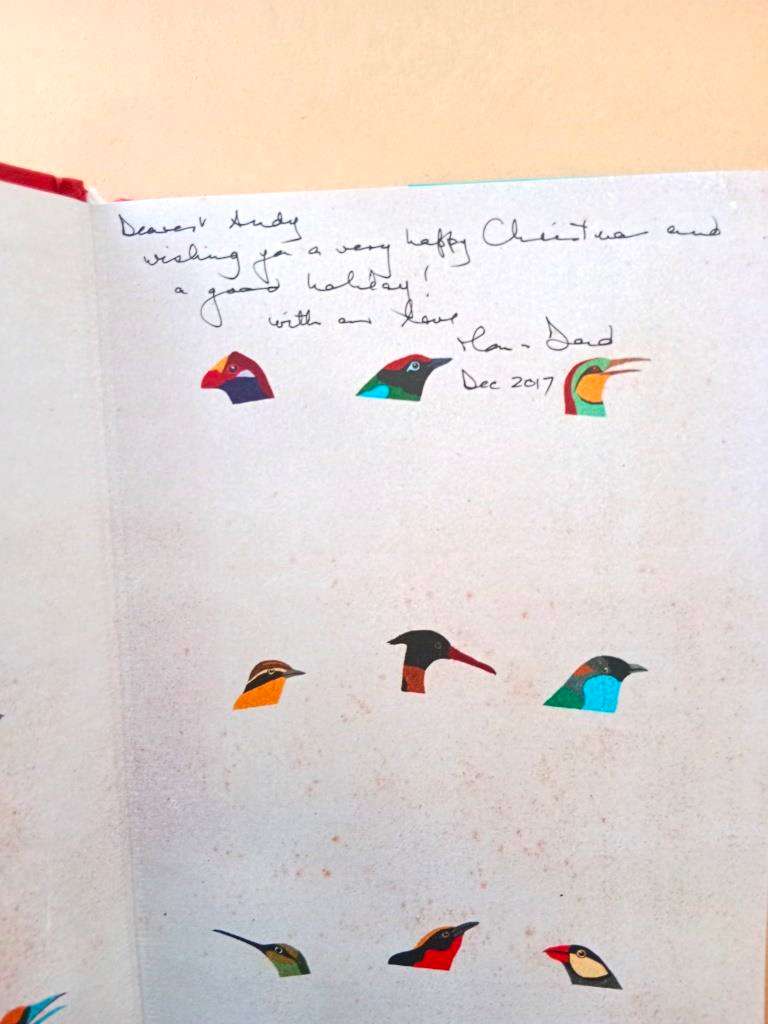 Dearest Andy
wishing you a very happy Christmas and
a good holiday!
with our love
Dec 2017